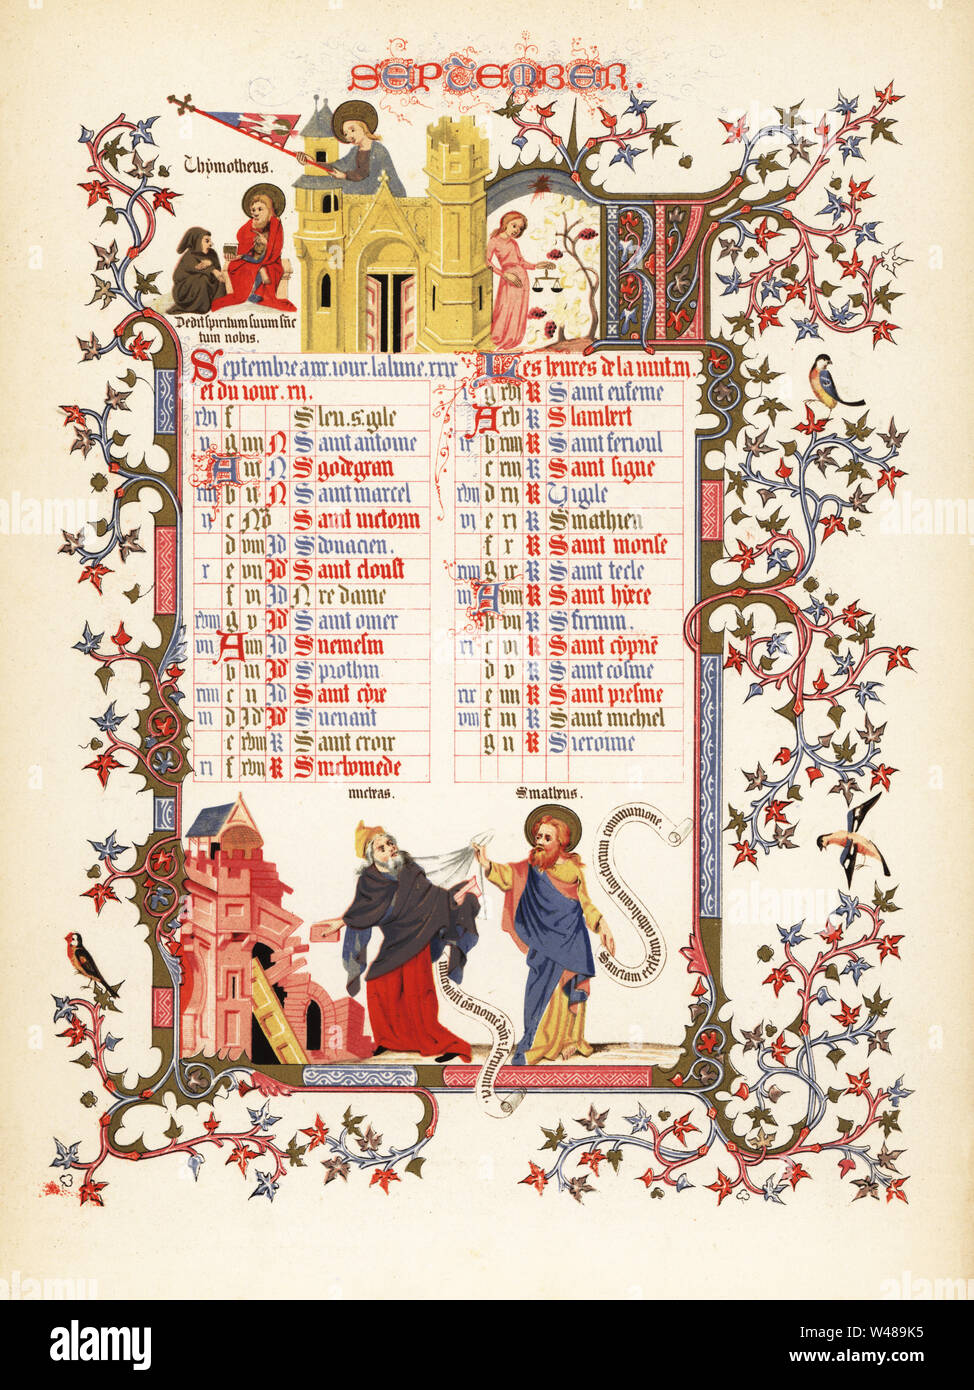 SEPTEMBER.
Thymotheus.
Dedit spiritum suum sūc
tum nobis.
Septembre a xxx iour. la lune. xxix
et du iour. xii.
xvi f S leu. s. gile
v g iiii N Saint antoine
A iii N S godegran
xiii b ii N Saint marcel
ii c No Saint victorin
d viii Id S donacien.
x e vii Id Saint cloust
f vi Id Nre dame
xviii g v Id Saint omer
vii A iiii Id S nemesin
b iii Id S prothin
c ii Id Saint cyre
iiii d Id Id S uenant
e xviii K Saint croix
xi f xvii K S nichomede
Les heures de la nuit. xii.
g xvi K Saint eufeme
A xv K S lambert
b xiiii K Saint ferioul
c xiii K Saint signe
xvii d xii K Vigile
vi e xi K S mathieu
f x K Saint morise
xiiii g ix K Saint tecle
iii A viii K Saint hirce
b vii K S firmin.
xi c vi K Saint cyprie
d v K Saint cosme
xix e iiii K Saint presme
viii f iii K Saint michiel
g ii K S ieronime
micheas.
S. matheus.
Sanctam eccliam catholicam sanctorum communione.
alamy
W489K5
www.alamy.com